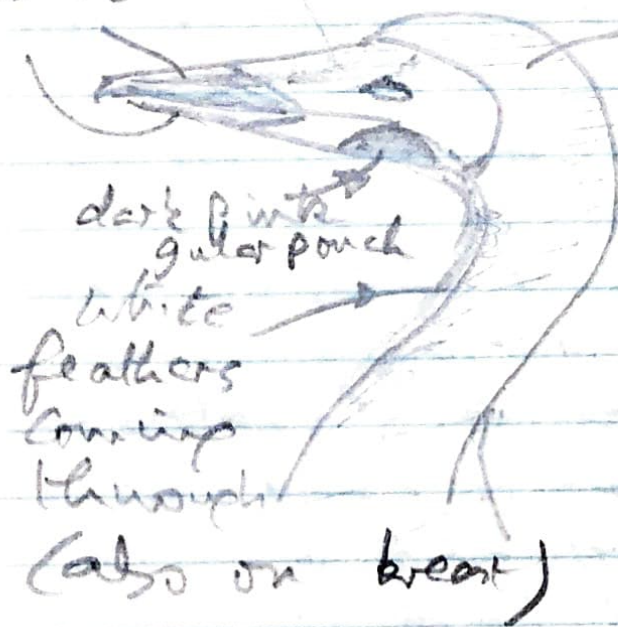 dark pink
gular pouch
white
feathers
coming
through
(also on breast)